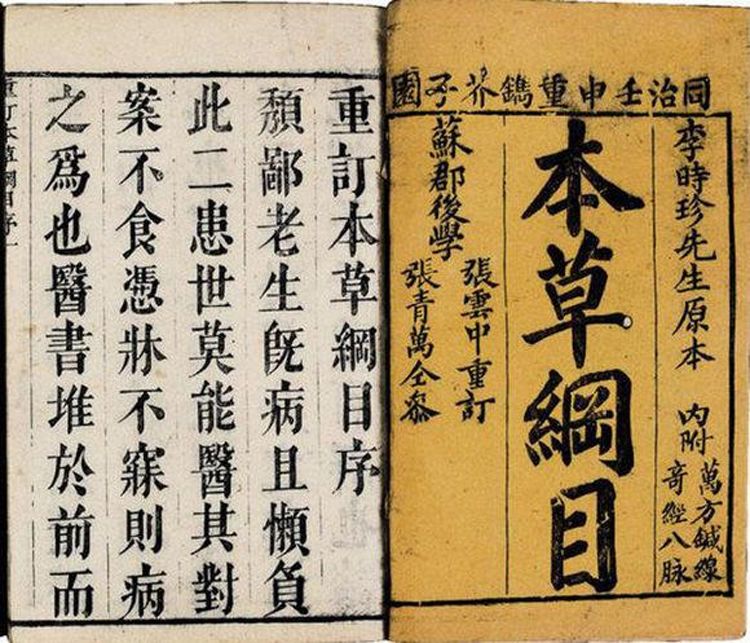 同治壬申重鐫芥子園
李時珍先生原本
内附
萬方鍼線
奇經八脉
本草綱目
蘇郡後學
張雲中重訂
張青萬仝參
重訂本草綱目序
頽鄙老生旣病且懶負
此二患世莫能醫其對
案不食憑牀不寐則病
之爲也醫書堆於前而
重訂本草綱目序一